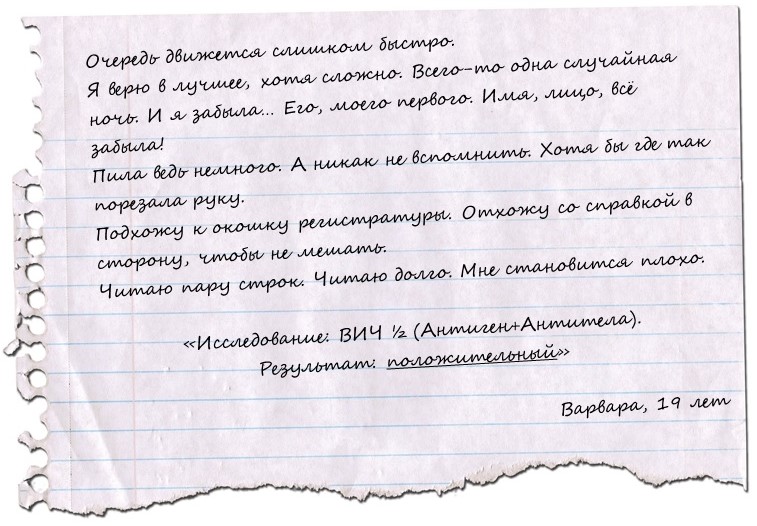 Очередь движется слишком быстро.
Я верю в лучшее, хотя сложно. Всего-то одна случайная
ночь. И я забыла... Его, моего первого. Имя, лицо, всё
забыла!
Пила ведь немного. А никак не вспомнить. Хотя бы где так
порезала руку.
Подхожу к окошку регистратуры. Отхожу со справкой в
сторону, чтобы не мешать.
Читаю пару строк. Читаю долго. Мне становится плохо.
«Исследование: ВИЧ ½ (Антиген+Антитела).
Результат: положительный»
Варвара, 19 лет